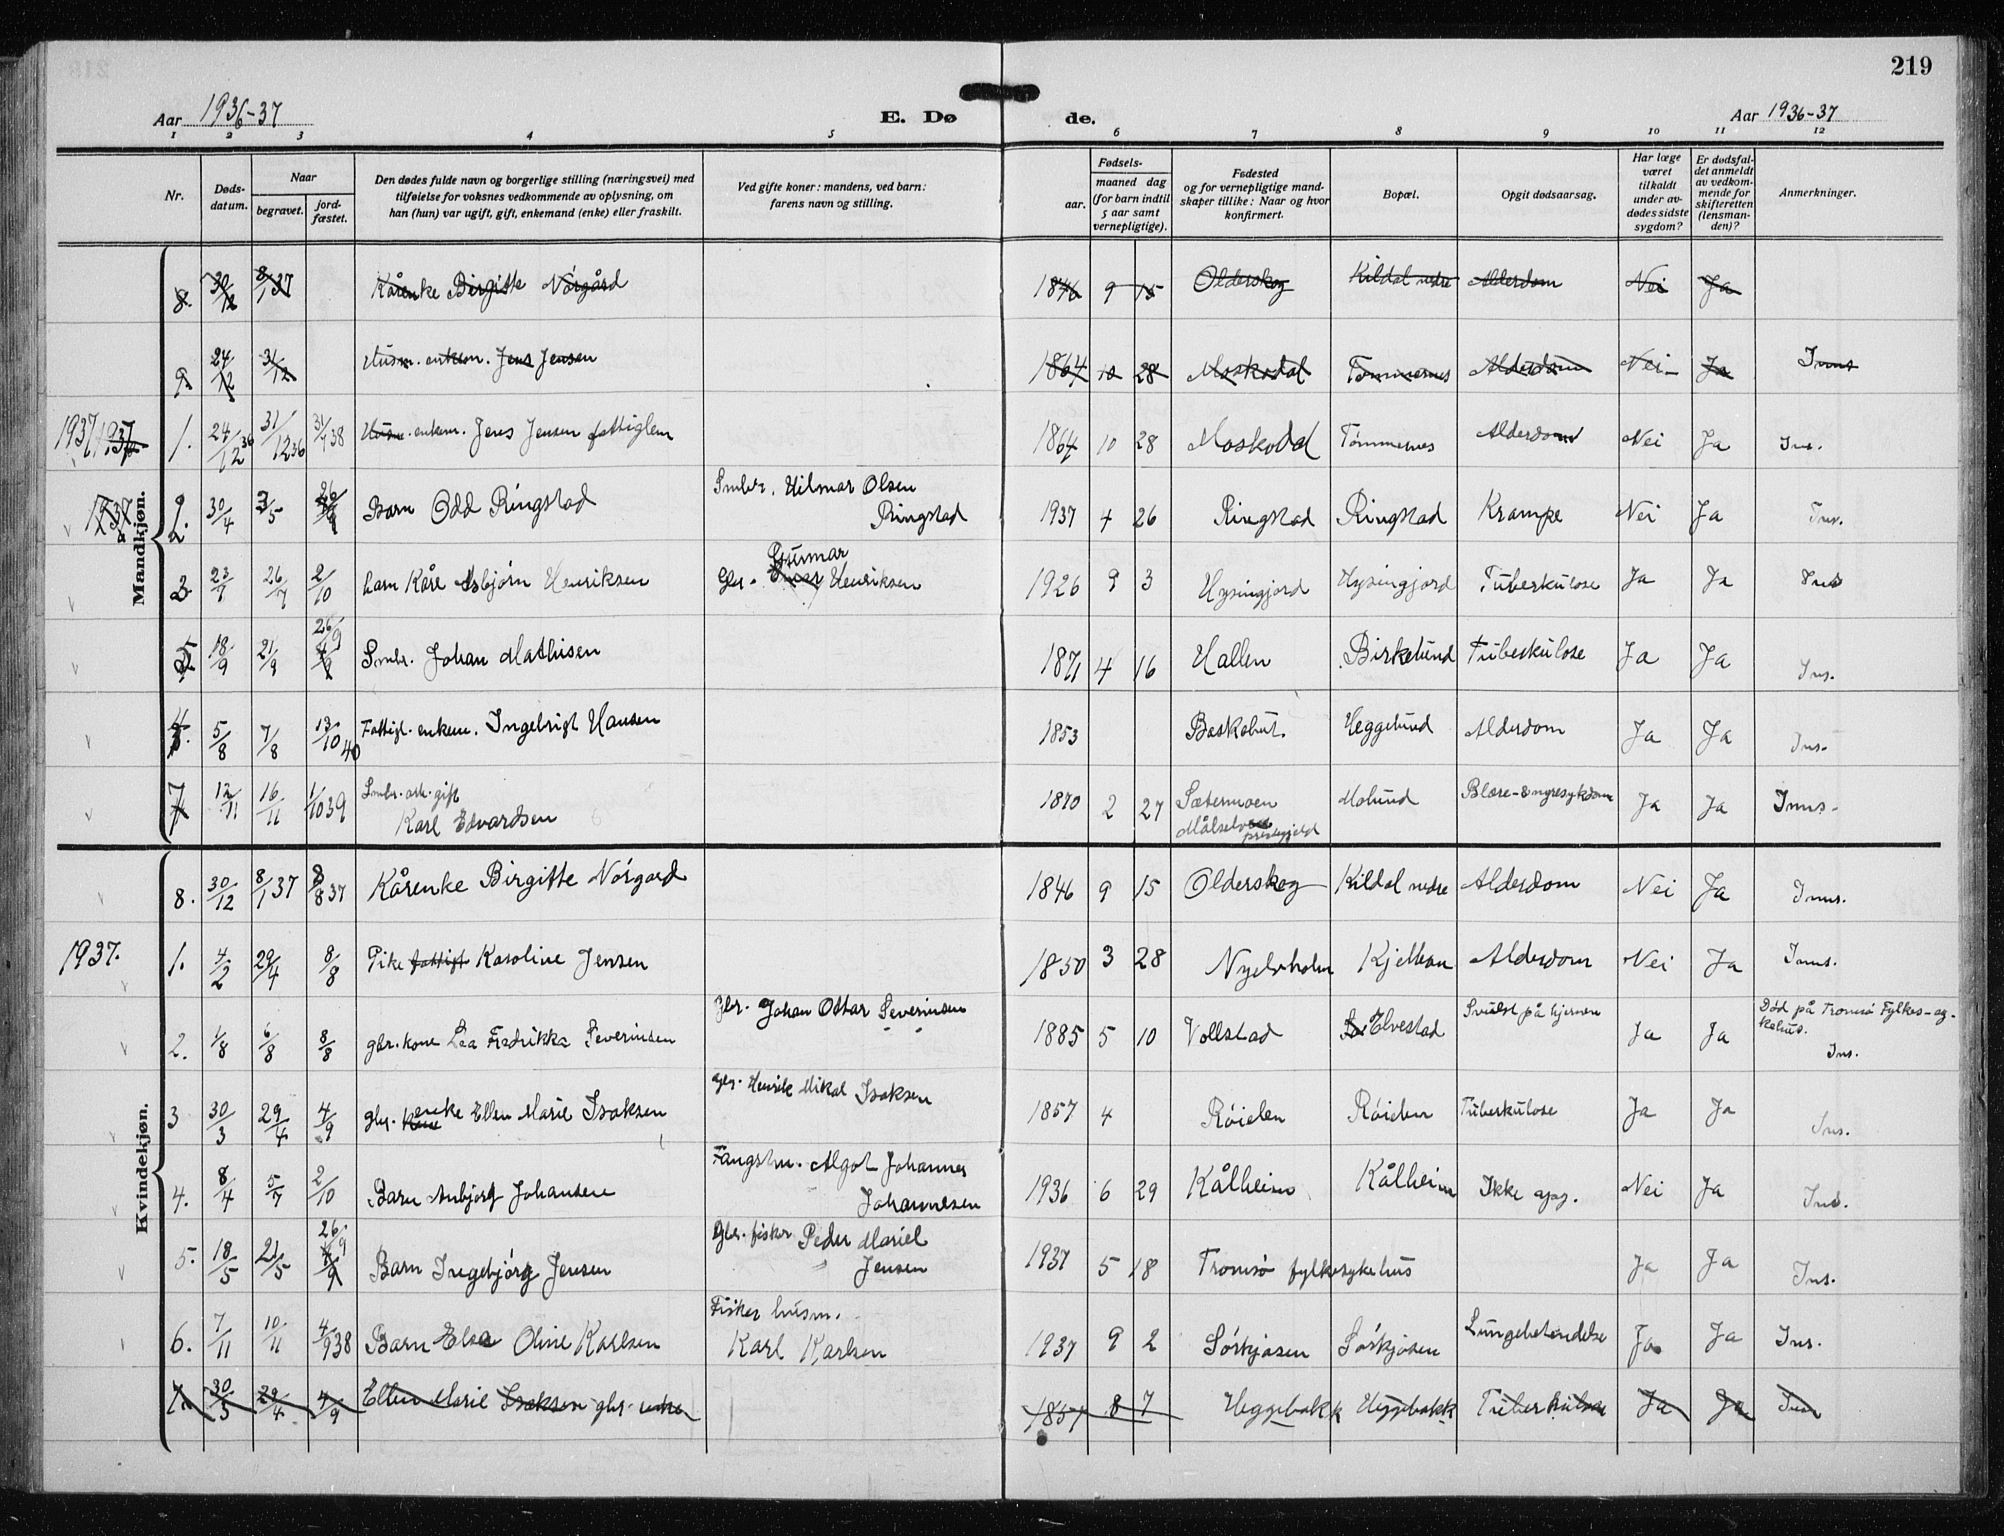 219
Aar 1936-37
E. Dø
de.
Aar 1936-37
1 2 3 4 5 6 7 8 9 10 11 12
Nr.
Døds-
datum.
Naar
begravet.
jord-
fæstet.
Den dødes fulde navn og borgerlige stilling (næringsvei) med
tilføielse for voksnes vedkommende av oplysning, om
han (hun) var ugift, gift, enkemand (enke) eller fraskilt.
Ved gifte koner: mandens, ved barn:
farens navn og stilling.
Fødsels-
aar.
maaned dag
(for barn indtil
5 aar samt
vernepligtige).
Fødested
og for vernepligtige mand-
skaper tillike: Naar og hvor
konfirmert.
Bopæl.
Opgit dødsaarsag.
Har læge
været
tilkaldt
under av-
dødes sidste
sygdom?
Er dødsfal-
det anmeldt
av vedkom-
mende for
skifteretten
(lensman-
den)?
Anmerkninger.
Mandkjøn.
8. 30/12 8/1 37 Kårenke Birgitte Nórgård 1846 9 15 Olderskog Kildal nedre Alderdom Nei Ja
9. 24/12 31/12 Husm. enkem. Jens Jensen 1864 10 28 Moskodal Tømmernes Alderdom Nei Ja Inns
1937 1937 1. 24/12 36 31/12 36 31/1 38 Husm. enkem. Jens Jensen fattiglem 1864 10 28 Moskodal Tømmernes Alderdom Nei Ja Ins.
1937 2. 30/4 3/5 26/9 Barn Odd Ringstad Smbr. Hilmar Olsen
Ringstad 1937 4 26 Ringstad Ringstad Krampe Nei Ja Ins.
23/7 26/7 2/10 barn Kåre Asbjørn Henriksen Gbr. Gunnar Henriksen 1926 9 3 Hysingjord Hysingjord Tuberkulose Ja Ja Ins
5. 18/9 21/9 26/9 Smbr. Johan Mathisen 1871 4 16 Hallen Birkelund Tuberkulose Ja Ja Ins.
4. 5/8 7/8 13/10 40 Fattigl. enkem. Ingebrigt Hansen 1853 Heggelund Alderdom Ja Ja Ins.
7 12/11 16/11 1/10 39 Smbr. arb. gift
Karl Edvardsen 1870 2 27 Sætermoen
Målselv
prestegjeld Molund Blære- & nyresykdom Ja Ja Inns.
Kvindekjøn.
8. 30/12 8/1 37 8/8 37 Kårenke Birgitte Nórgård 1846 9 15 Olderskog Kildal nedre Alderdom Nei Ja Inns.
1937. 1. 4/2 29/4 8/8 Pike fattigl Karoline Jensen 1850 3 28 Nyelvholm Kjelhan Alderdom Nei Ja Inns.
2. 1/8 6/8 8/8 gbr. kone Lea Fredrikka Severinsen gbr. Johan Ottar Severinsen 1885 5 10 Vollstad Elvestad Svulst på hjernen Ja Ja Død på Tromsø Fylkes-
Ins.
3 30/3 29/4 4/9 gbr. kone enke Ellen Marie Isaksen gbr. Henrik Mikal Isaksen 1857 4 Røielen Røielen Tuberkulose Ja Ja Ins.
4. 8/4 5/7 2/10 Barn Anbjørg Johansen Fangstm. Algot Johannes
Johannesen 1936 6 29 Kålheim Kålheim Ikke opg. Nei Ja Ins.
5. 18/5 21/5 26/9 Barn Ingebjørg Jensen gbr. fisker Peder Mariel
Jensen 1937 5 18 Tromsø fylkesykehus Ja Ja Ins.
6. 7/11 10/11 4/9 38 Barn Elsa Oline Karlsen Fisker husm.
Karl Karlsen 1937 9 2 Sørkjosen Sørkjosen Lungebetendelse Ja Ja Ins.
7. 30/3 29/4 4/9 Ellen Marie Isaksen gbr. enke 1857 8 7 Heggebakk Heggebakk Tuberkulose Ja Ja Ins